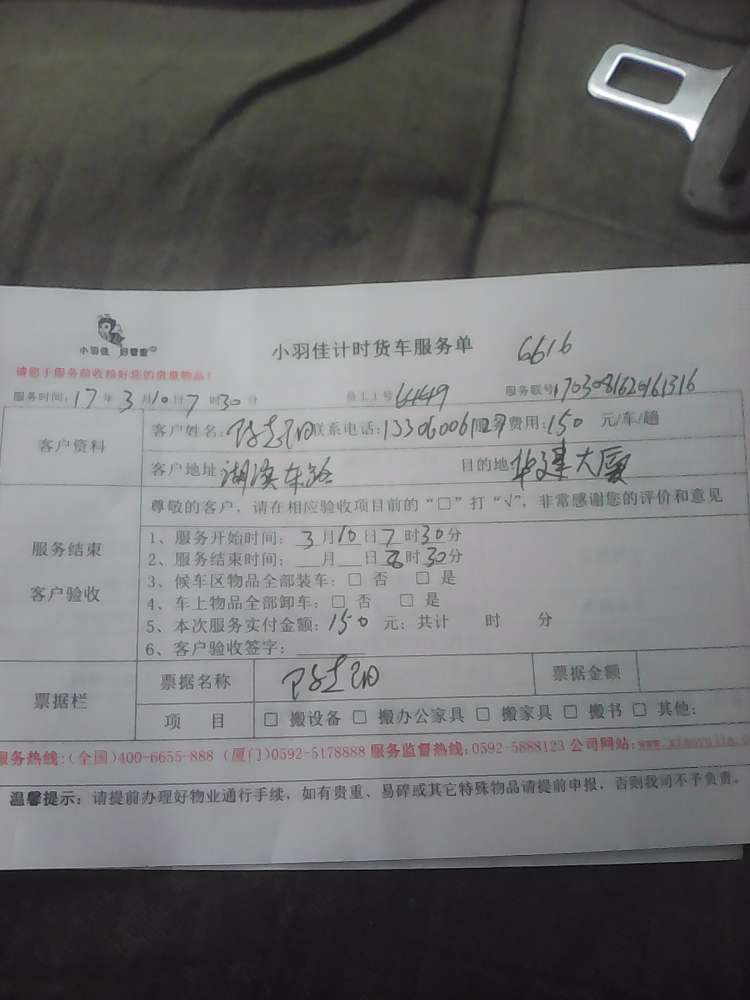 小羽佳 好管家
小羽佳计时货车服务单 6616
请您于服务前收拾好您的贵重物品!
服务时间:17年3月10日7时30分 员工工号 6449 服务联号170308162016131​6
客户资料
客户姓名: 联系电话: 费用:150 元/车/趟
客户地址:湖滨东路 目的地 华建大厦
服务结束
客户验收
尊敬的客户,请在相应验收项目前的“□”打“√”,非常感谢您的评价和意见
1、服务开始时间:3月10日7时30分
2、服务结束时间:__月__日8时30分
3、候车区物品全部装车:□ 否 □ 是
4、车上物品全部卸车:□ 否 □ 是
5、本次服务实付金额:150 元;共计 时 分
6、客户验收签字:
票据栏
票据名称 票据金额
项 目 □ 搬设备 □ 搬办公家具 □ 搬家具 □ 搬书 □ 其他:
服务热线:(全国)400-6655-888 (厦门)0592-5178888 服务监督热线:0592-5888123 公司网站:
温馨提示:请提前办理好物业通行手续,如有贵重、易碎或其它特殊物品请提前申报,否则我司不予负责。